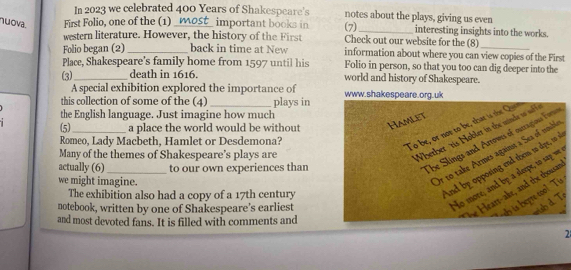 nuova.
In 2023 we celebrated 400 Years of Shakespeare's
First Folio, one of the (1) most important books in
western literature. However, the history of the First
Folio began (2) ________ back in time at New
Place, Shakespeare's family home from 1597 until his
(3) ________ death in 1616.
A special exhibition explored the importance of
this collection of some of the (4) ________ plays in
the English language. Just imagine how much
(5) ________ a place the world would be without
Romeo, Lady Macbeth, Hamlet or Desdemona?
Many of the themes of Shakespeare's plays are
actually (6) ________ to our own experiences than
we might imagine.
The exhibition also had a copy of a 17th century
notebook, written by one of Shakespeare's earliest
and most devoted fans. It is filled with comments and
notes about the plays, giving us even
(7) ________ interesting insights into the works.
Check out our website for the (8) ________
information about where you can view copies of the First
Folio in person, so that you too can dig deeper into the
world and history of Shakespeare.
www.shakespeare.org.uk
HAMLET
To be, or not to be, that is the
Whether 'tis Nobler in the minde to
The Slings and Arrows of outragious
Or to take Armes against a Sea of
And by opposing end them: to dye, to
No more; and by a sleepe, to say we
The Heart-ake, and the thousand
2